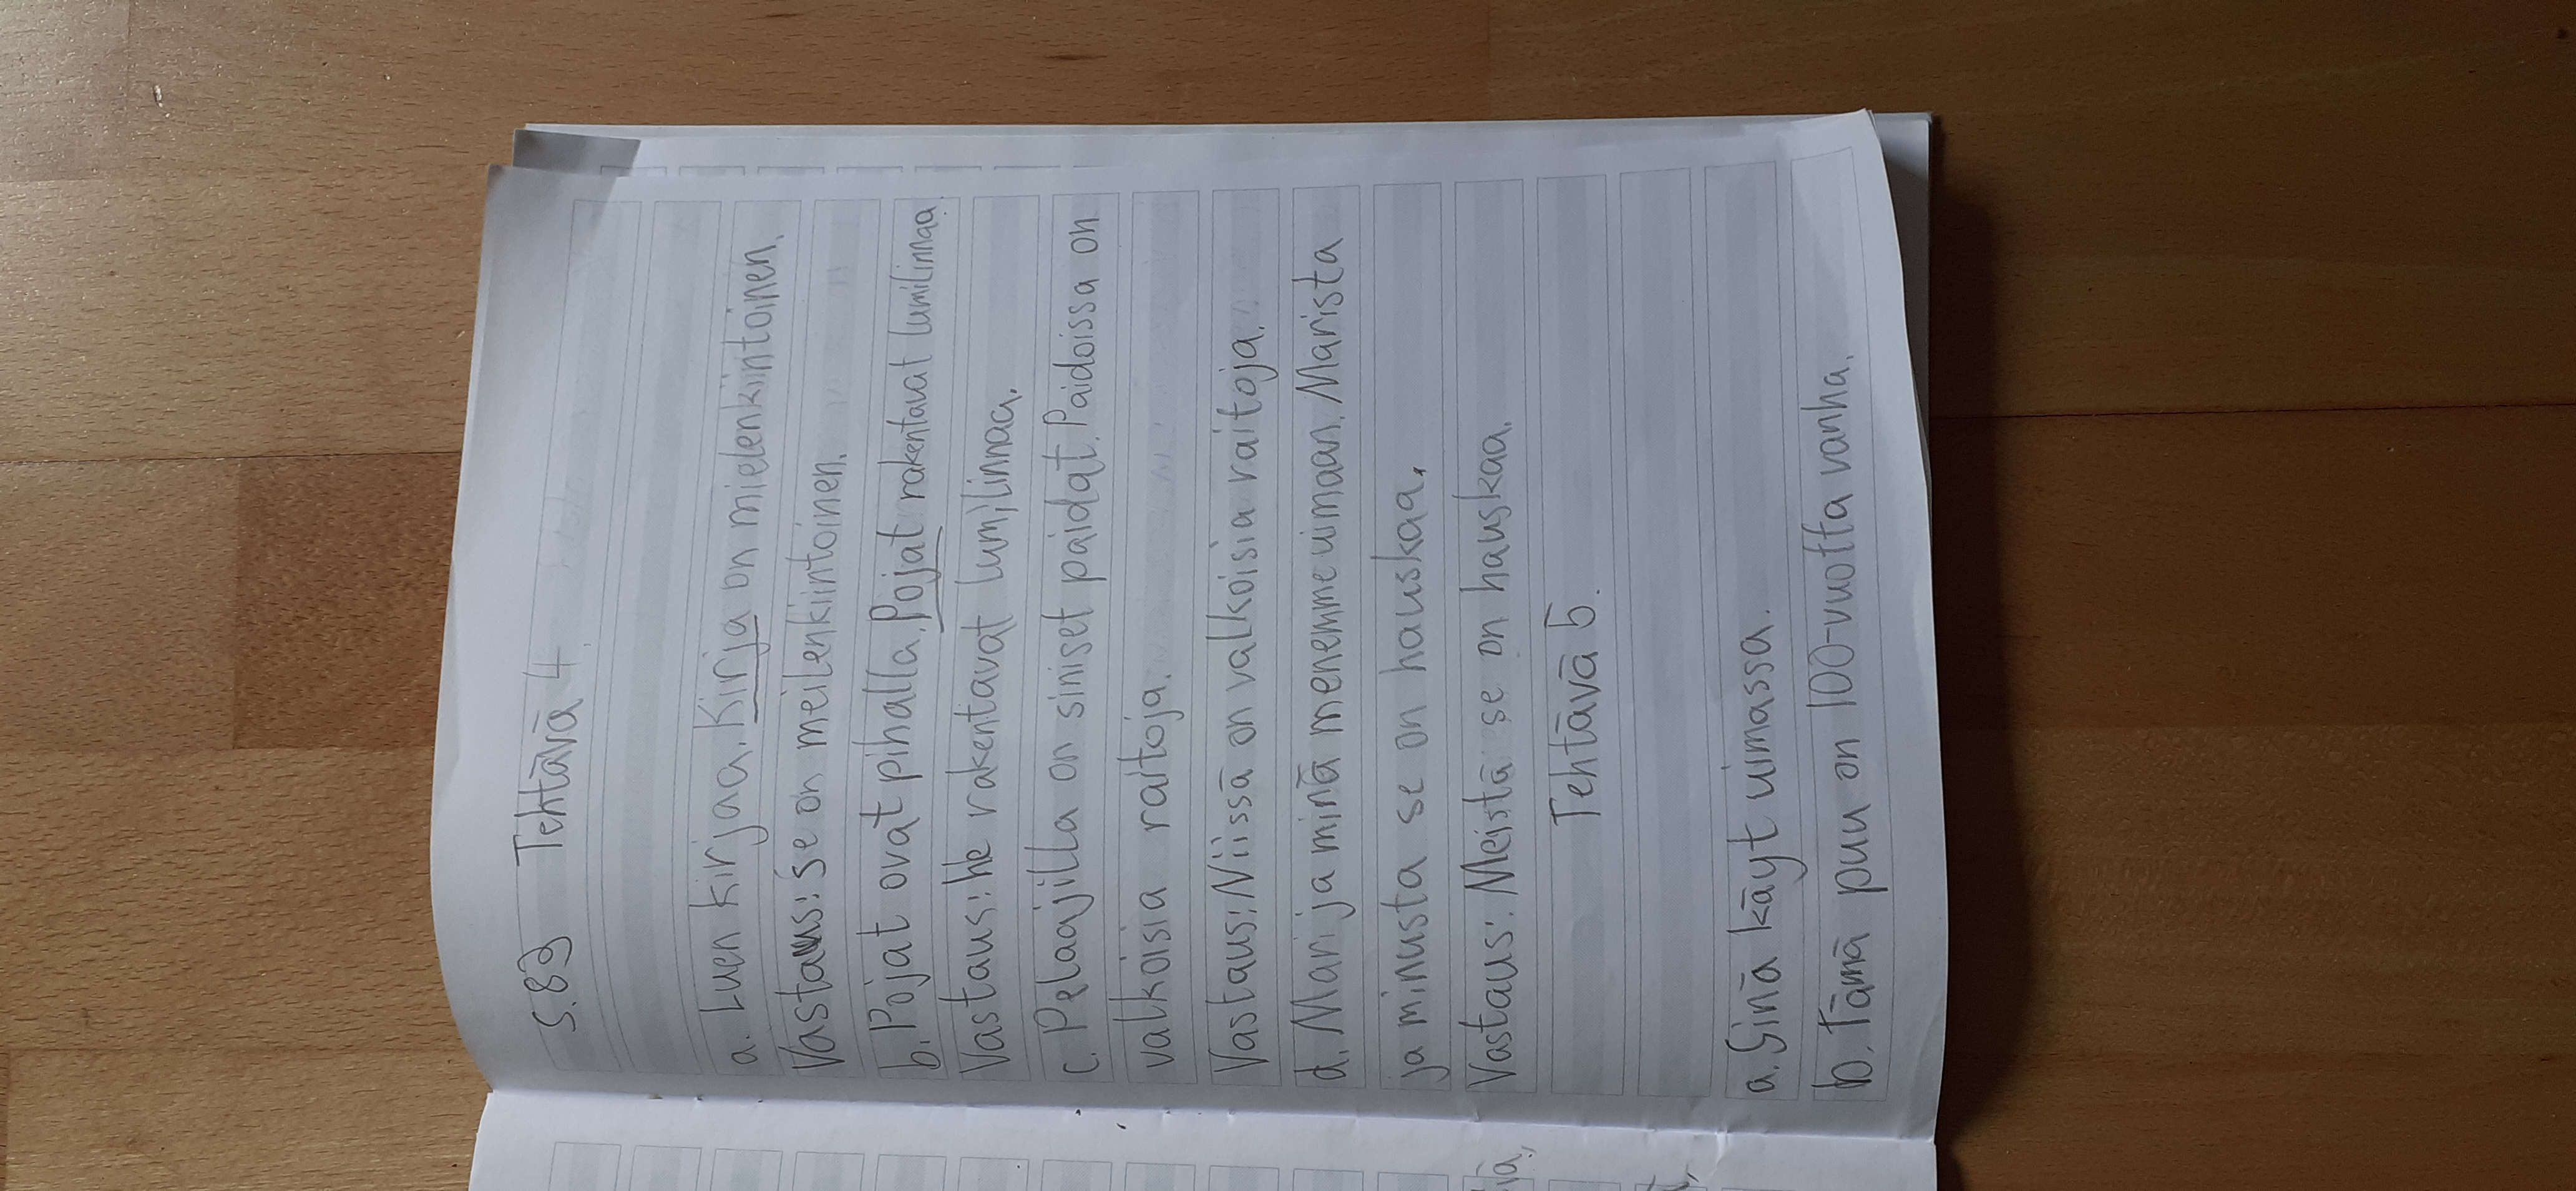 S.89 Tehtävä 4.
a. Luen kirjaa. Kirja on mielenkiintoinen.
Vastaus: se on meilenkiintoinen.
b. Pojat ovat pihalla. Pojat rakentavat lumilinnaa.
Vastaus: he rakentavat lumilinnaa.
c. Pelaajilla on siniset paidat. Paidoissa on
valkoisia raitoja.
Vastaus: Niissä on valkoisia raitoja.
d. Mari ja minä menemme uimaan. Marista
ja minusta se on hauskaa.
Vastaus: Meistä se on hauskaa.
Tehtävä 5.
a. Sinä käyt uimassa.
b. Tämä puu on 100-vuotta vanha.